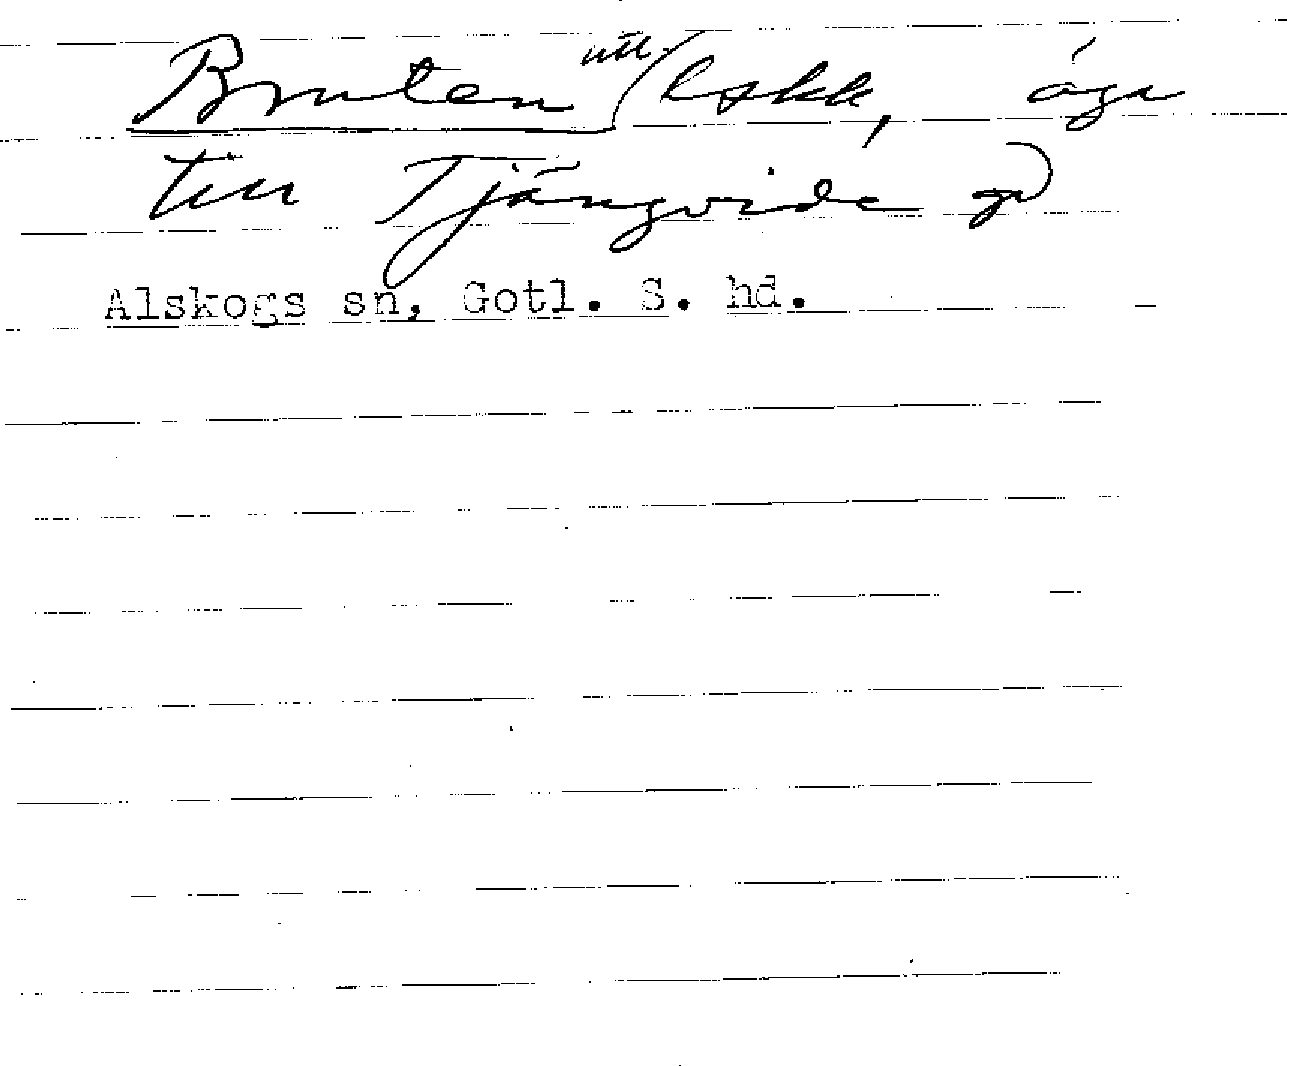 Bruten utt (eskk, äga
till Tjängvide gd)
Alskogs sn, Gotl. S. hd.